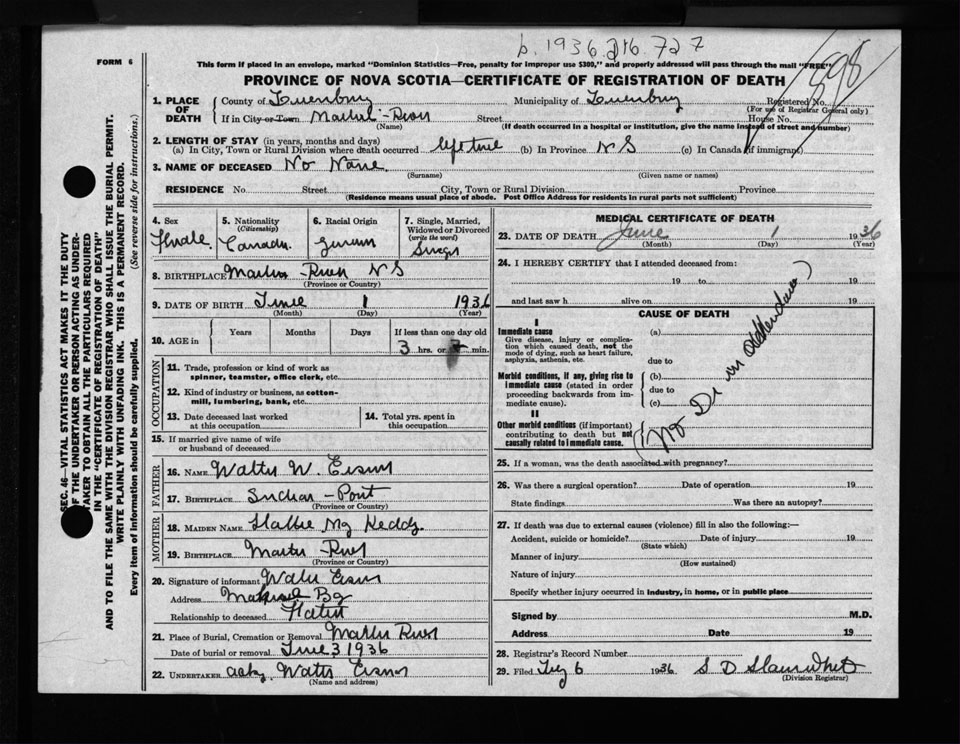 b. 1936.216.727
898
FORM 6
This form if placed in an envelope, marked "Dominion Statistics—Free, penalty for improper use $300," and properly addressed will pass through the mail "FREE"
PROVINCE OF NOVA SCOTIA—CERTIFICATE OF REGISTRATION OF DEATH
SEC. 46—VITAL STATISTICS ACT MAKES IT THE DUTY
OF THE UNDERTAKER OR PERSON ACTING AS UNDER-
TAKER TO OBTAIN ALL THE PARTICULARS REQUIRED
IN THE "CERTIFICATE OF REGISTRATION OF DEATH"
AND TO FILE THE SAME WITH THE DIVISION REGISTRAR WHO SHALL ISSUE THE BURIAL PERMIT.
WRITE PLAINLY WITH UNFADING INK. THIS IS A PERMANENT RECORD.
Every item of information should be carefully supplied. (See reverse side for instructions.)
1. PLACE OF DEATH
County of Lunenburg Municipality of Lunenburg Registered No.
(For use of Registrar General only)
If in City or Town Street House No.
(Name) (If death occurred in a hospital or institution, give the name instead of street and number)
2. LENGTH OF STAY (in years, months and days)
(a) In City, Town or Rural Division where death occurred lifetime (b) In Province N S (c) In Canada (if immigrant)
3. NAME OF DECEASED No Name
(Surname) (Given name or names)
RESIDENCE No. Street City, Town or Rural Division Province
(Residence means usual place of abode. Post Office Address for residents in rural parts not sufficient)
4. Sex
5. Nationality
(Citizenship)
Canadn.
6. Racial Origin
7. Single, Married, Widowed or Divorced
(write the word)
8. BIRTHPLACE N S
(Province or Country)
9. DATE OF BIRTH June 1 1936
(Month) (Day) (Year)
10. AGE in
Years Months Days If less than one day old
3 hrs. or min.
OCCUPATION
11. Trade, profession or kind of work as
spinner, teamster, office clerk, etc.
12. Kind of industry or business, as cotton-
mill, lumbering, bank, etc.
13. Date deceased last worked
at this occupation
14. Total yrs. spent in
this occupation
15. If married give name of wife
or husband of deceased
FATHER
16. NAME Walter W.
17. BIRTHPLACE
(Province or Country)
MOTHER
18. MAIDEN NAME
19. BIRTHPLACE
(Province or Country)
20. Signature of informant
Address
Relationship to deceased
21. Place of Burial, Cremation or Removal
Date of burial or removal June 3 1936
22. UNDERTAKER
(Name and address)
MEDICAL CERTIFICATE OF DEATH
23. DATE OF DEATH June 1 1936
(Month) (Day) (Year)
24. I HEREBY CERTIFY that I attended deceased from:
19 to 19
and last saw h alive on 19
CAUSE OF DEATH
I
Immediate cause
Give disease, injury or complica-
tion which caused death, not the
mode of dying, such as heart failure,
asphyxia, asthenia, etc.
(a)
due to
Morbid conditions, if any, giving rise to
immediate cause (stated in order
proceeding backwards from im-
mediate cause).
(b)
due to
(c)
II
Other morbid conditions (if important)
contributing to death but not
causally related to immediate cause.
No Dr in attendance
25. If a woman, was the death associated with pregnancy?
26. Was there a surgical operation? Date of operation 19
State findings Was there an autopsy?
27. If death was due to external causes (violence) fill in also the following:—
Accident, suicide or homicide? Date of injury 19
(State which)
Manner of injury
(How sustained)
Nature of injury
Specify whether injury occurred in industry, in home, or in public place
Signed by M.D.
Address Date 19
28. Registrar's Record Number
29. Filed 6 1936 S D
(Division Registrar)